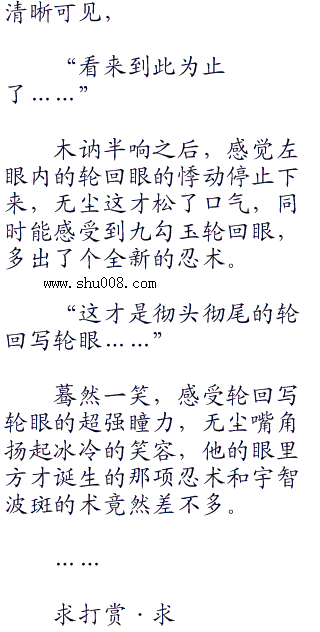 清晰可见，
“看来到此为止
了……”
木讷半响之后，感觉左
眼内的轮回眼的悸动停止下
来，无尘这才松了口气，同
时能感受到九勾玉轮回眼，
多出了个全新的忍术。
www.shu008.com
“这才是彻头彻尾的轮
回写轮眼……”
蓦然一笑，感受轮回写
轮眼的超强瞳力，无尘嘴角
扬起冰冷的笑容，他的眼里
方才诞生的那项忍术和宇智
波斑的术竟然差不多。
……
求打赏·求